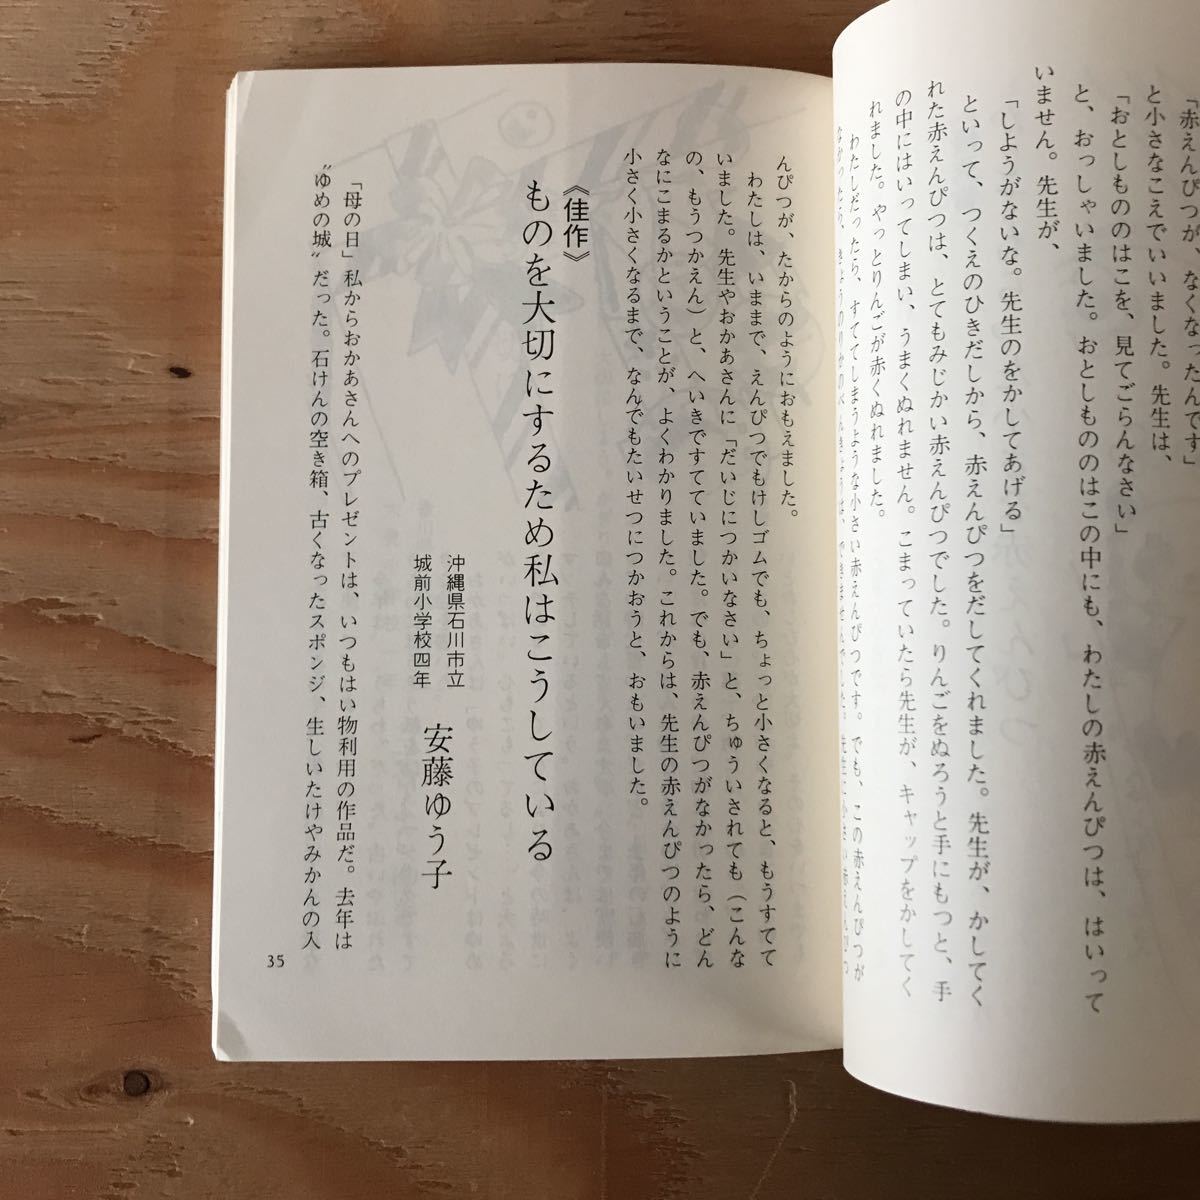 「赤えんぴつが、なくなったんです」
と小さなこえでいいました。先生は、
「おとしもののはこを、見てごらんなさい」
と、おっしゃいました。おとしもののはこの中にも、わたしの赤えんぴつは、はいって
いません。先生が、
「しようがないな。先生のをかしてあげる」
といって、つくえのひきだしから、赤えんぴつをだしてくれました。先生が、かしてく
れた赤えんぴつは、とてもみじかい赤えんぴつでした。りんごをぬろうと手にもつと、手
の中にはいってしまい、うまくぬれません。こまっていたら先生が、キャップをかしてく
れました。やっとりんごが赤くぬれました。
わたしだったら、すててしまうような小さい赤えんぴつです。でも、この赤えんぴつが
なかったら、きょうのりかのべんきょうは、できませんでした。先生の小さい赤えんぴつ
んぴつが、たからのようにおもえました。
わたしは、いままで、えんぴつでもけしゴムでも、ちょっと小さくなると、もうすてて
いました。先生やおかあさんに「だいじにつかいなさい」と、ちゅういされても(こんな
の、もうつかえん)と、へいきですてていました。でも、赤えんぴつがなかったら、どん
なにこまるかということが、よくわかりました。これからは、先生の赤えんぴつのように
小さく小さくなるまで、なんでもたいせつにつかおうと、おもいました。
《佳作》
ものを大切にするため私はこうしている
沖縄県石川市立
城前小学校四年
安藤ゆう子
「母の日」私からおかあさんへのプレゼントは、いつもはい物利用の作品だ。去年は
〝ゆめの城〟だった。石けんの空き箱、古くなったスポンジ、生しいたけやみかんの入
35